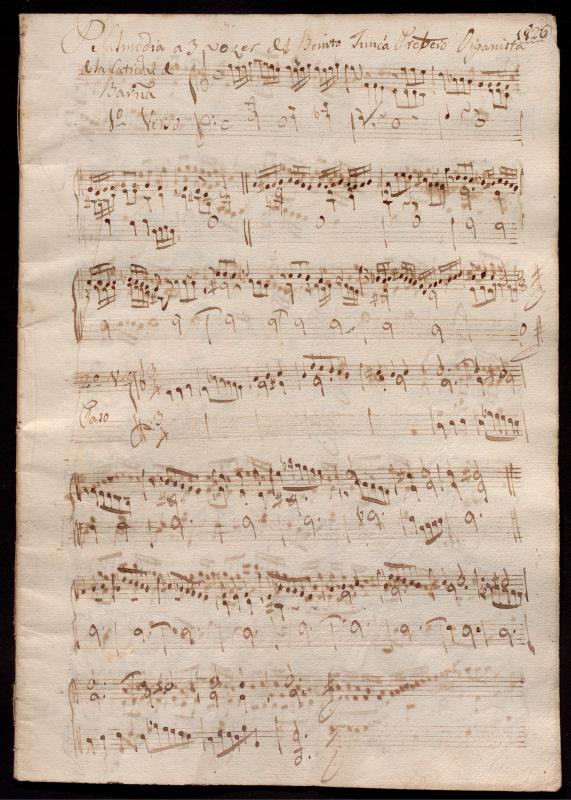 1826
Psalmodia a 3 vozes del Benito Juncá Presbero Organista
de la Catredal de
Barña
1o Verso
2o V
Paso